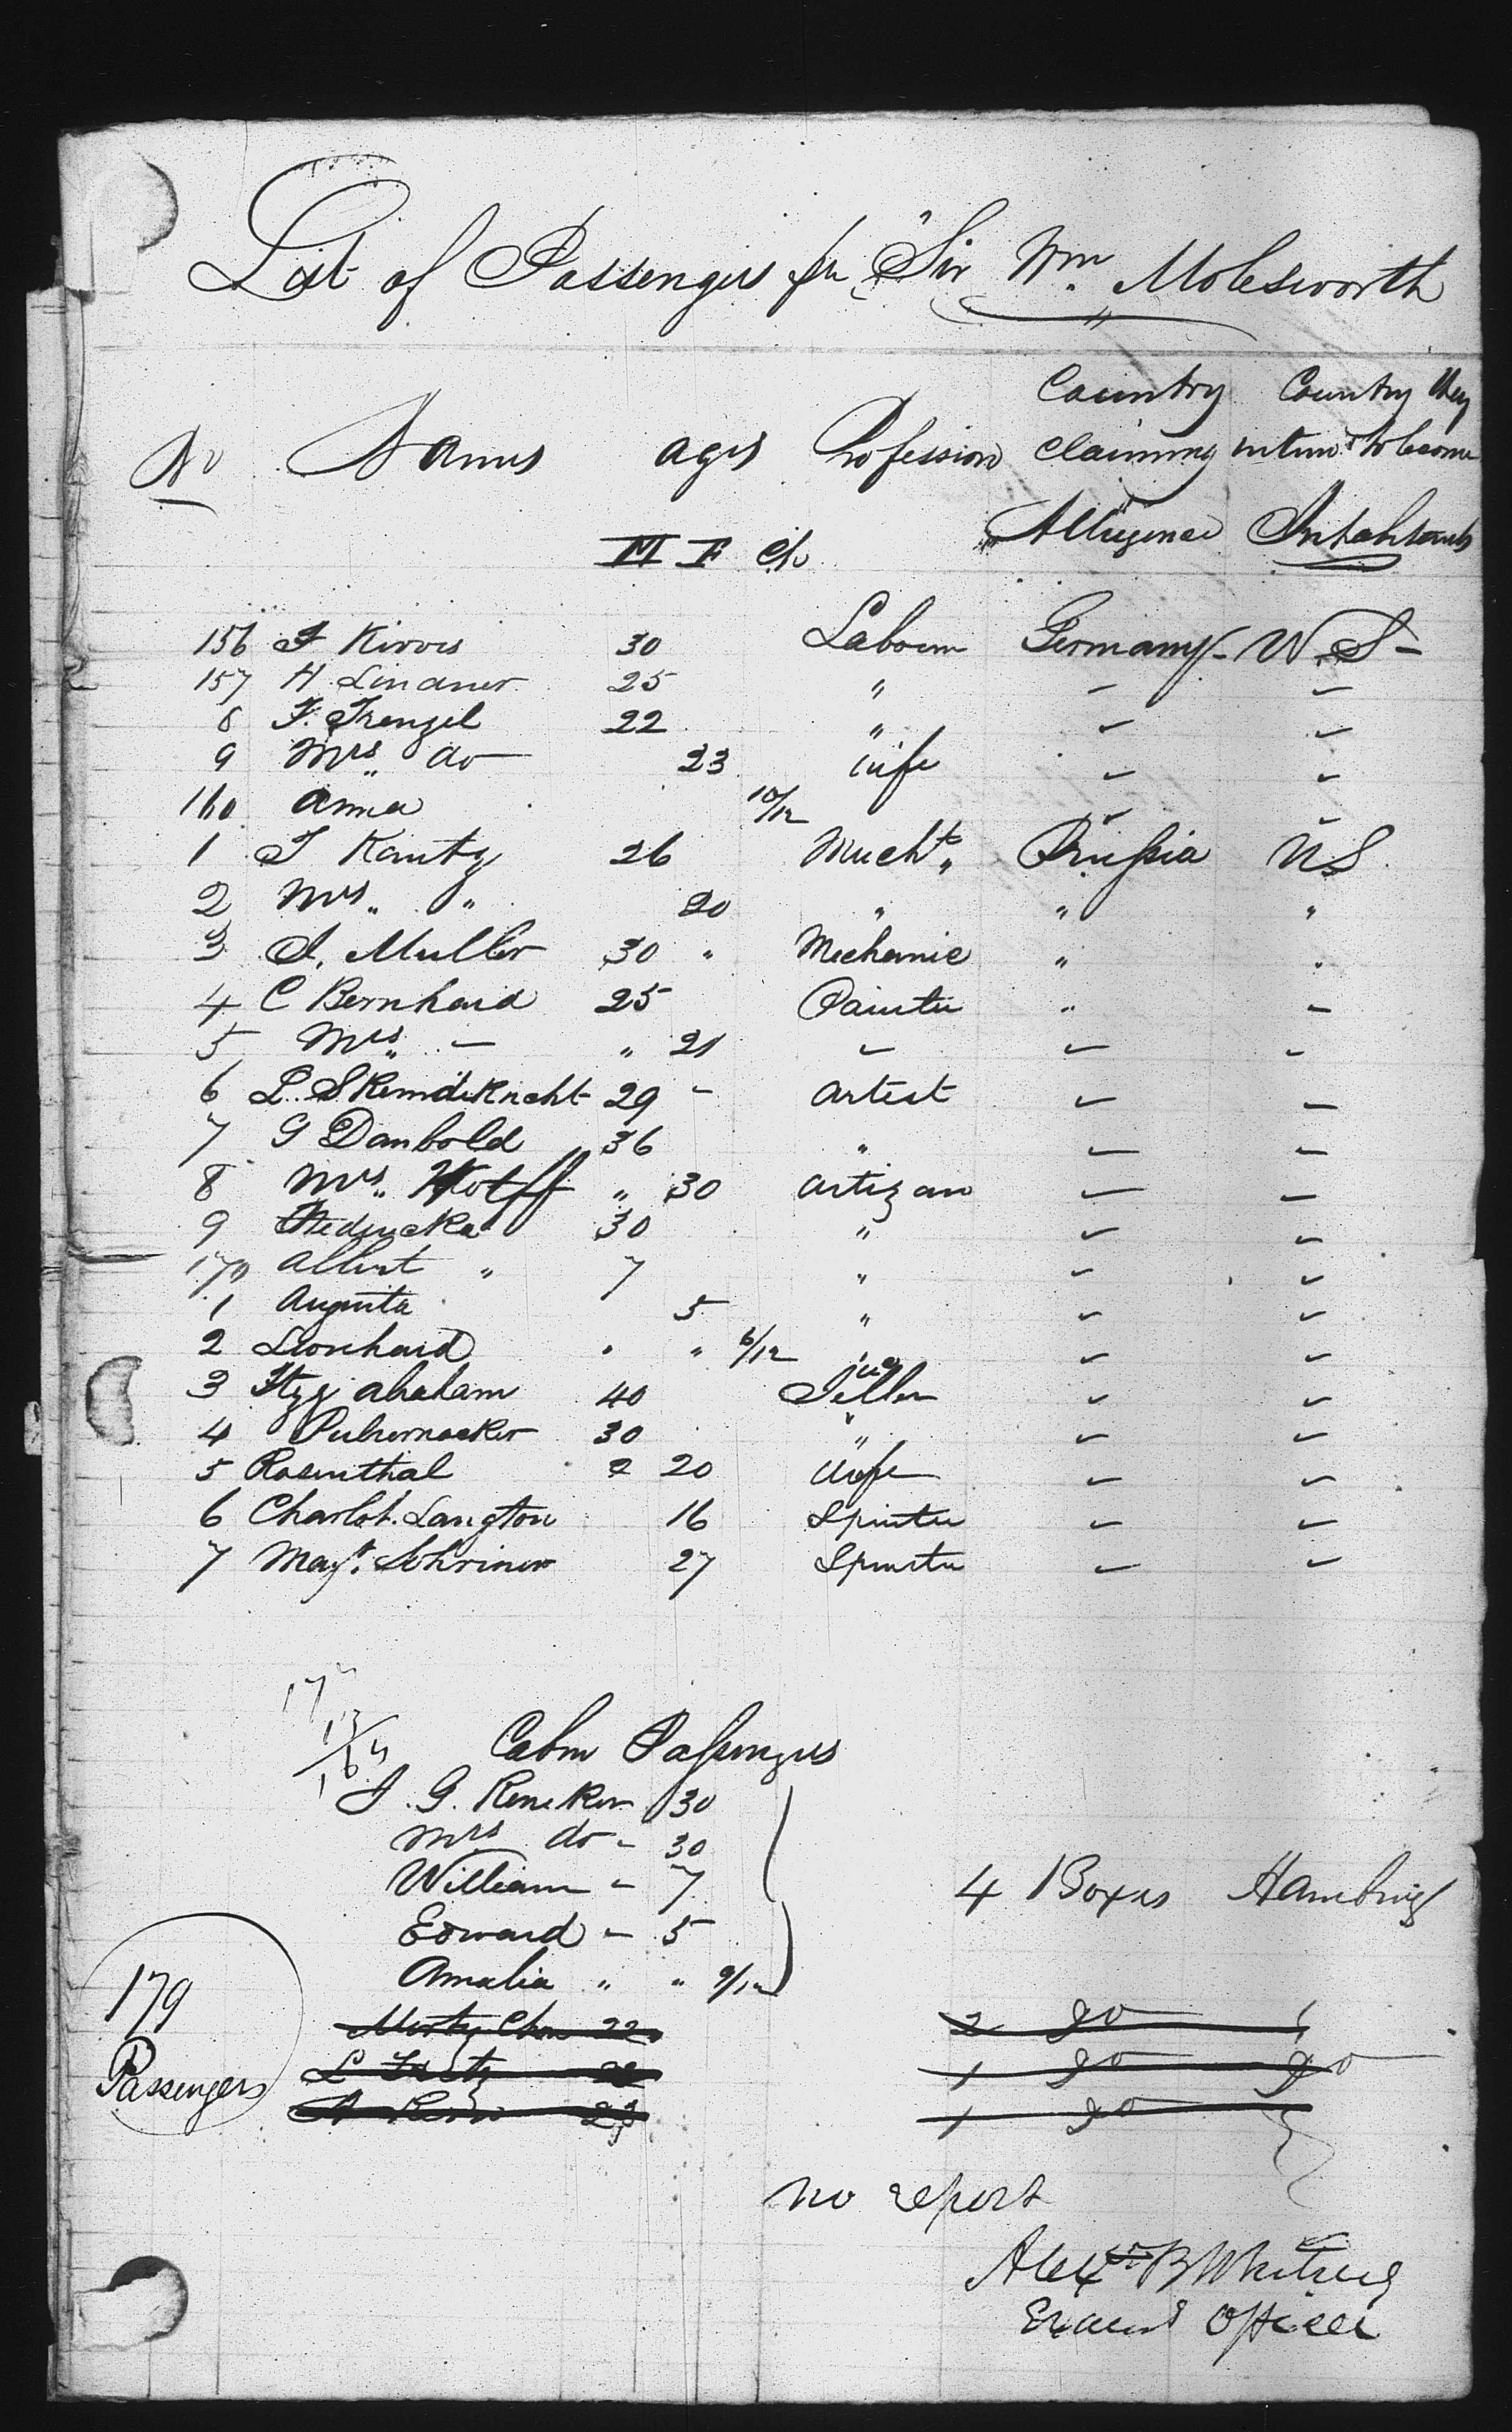 List of Passengers pr "Sir Wm. Molesworth
Country Country they
No Names ages Profession claiming intend to become
M F Ch Allegience Inhabitants
156 F Kirvis 30 Labourer Germany - U S -
157 H Lindner 25 " - -
8 F. Frenzel 22 " - -
9 Mrs. do 23 wife - -
160 Anna 10/12 - -
1 J Kautz 26 Mercht. Prussia U S
2 Mrs. " 20 " " "
3 A. Muller 30 " Mechanic " "
4 C Bernhard 25 Painter " -
5 Mrs. - " 21 - - -
6 L. Skemdeknecht 29 - artist - -
7 G Danbold 36 " - -
8 Mrs. Wolff " 30 artizan - -
9 Fredericka 30 " - -
170 Albert " 7 " - -
1 Augusta 5 " - -
2 Leonhard " " 6/12 " - -
3 abraham 40 - -
4 30 " - -
5 Rosenthal 2 20 wife - -
6 Charlot. Langton 16 Spinster - -
7 Magt. Schriner 27 Spinster - -
17
13
Cabin Passengers
J. G. Reneker 30
Mrs do - 30
William - 7 4 Boxes Hamburg
Edward - 5
Amalia " " 9/12
179 22 2 Do
Passengers L 22 1 Do Do
A 23 1 Do
no report
Alexr B Whiting
Officer